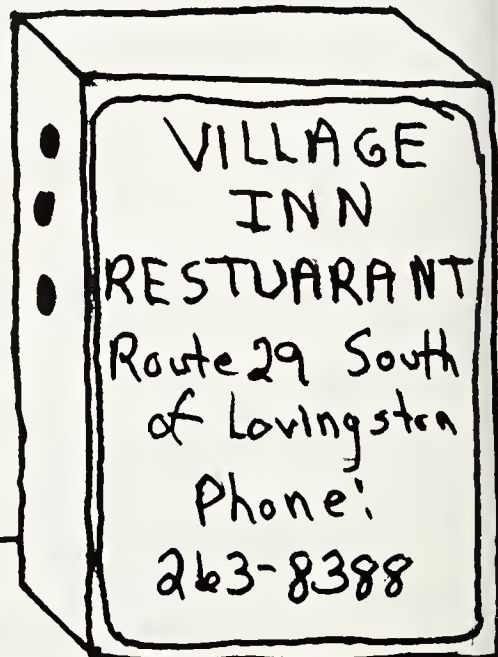 VILLAGE
INN
RESTUARANT
Route 29 South
of Lovingston
Phone:
263-8388